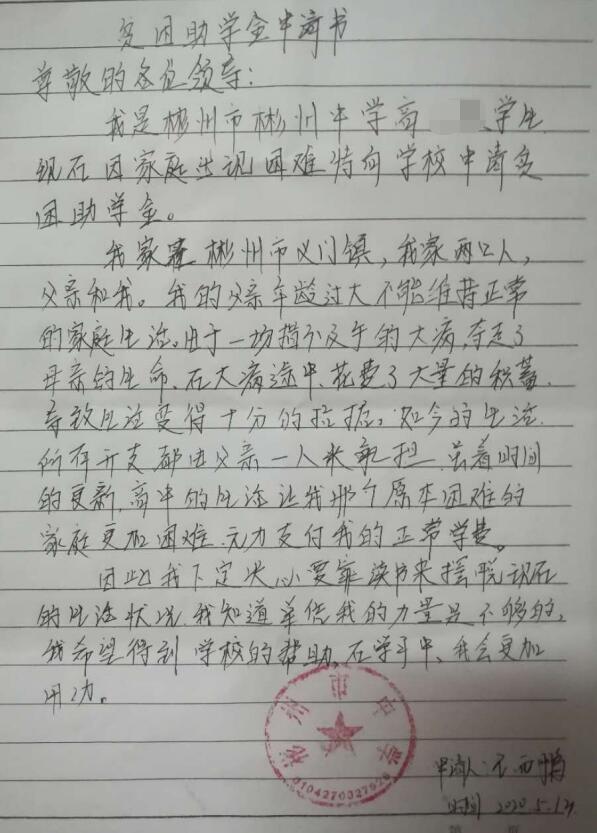 贫困助学金申请书
尊敬的各位领导:
我是彬州市彬州中学高 学生
现在因家庭出现困难特向学校申请贫
困助学金。
我家 彬州市义门镇,我家两口人,
父亲和我。我的父亲年龄过大不能维昔正常
的家庭生活。由于一场措不及手的大病,夺走了
母亲的生命,在大病途中,花费了大量的积蓄,
导致生活变得十分的拮据,如今的生活
所有开支都由父亲一人来承担,虽着时间
的更新,高中的生活让我那个原本困难的
家庭更加困难,无力支付我的正常学费。
因此我下定决心要靠读书来摆脱现在
的生活状况,我知道单凭我的力量是不够的,
我希望得到学校的帮助,在学习中,我会更加
用功。
彬州市中学
申请人:
时间 2020.5.1